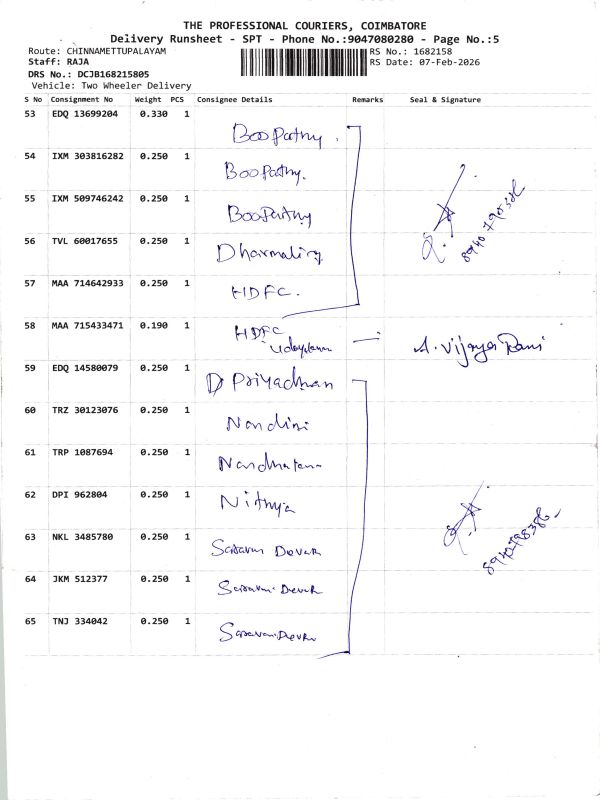 THE PROFESSIONAL COURIERS, COIMBATORE
Delivery Runsheet - SPT - Phone No.:9047080280 - Page No.:5
Route: CHINNAMETTUPALAYAM RS No.: 1682158
Staff: RAJA RS Date: 07-Feb-2026
DRS No.: DCJB168215805
Vehicle: Two Wheeler Delivery
S No Consignment No Weight PCS Consignee Details Remarks Seal & Signature
53 EDQ 13699204 0.330 1 Boopathy
54 IXM 303816282 0.250 1 Boopathy.
55 IXM 509746242 0.250 1 Boopathy
56 TVL 60017655 0.250 1
57 MAA 714642933 0.250 1 HDFC.
58 MAA 715433471 0.190 1 HDFC
A. Vijaya Rani
59 EDQ 14580079 0.250 1
60 TRZ 30123076 0.250 1 Nandini
61 TRP 1087694 0.250 1
62 DPI 962804 0.250 1 Nithya
63 NKL 3485780 0.250 1
64 JKM 512377 0.250 1
65 TNJ 334042 0.250 1